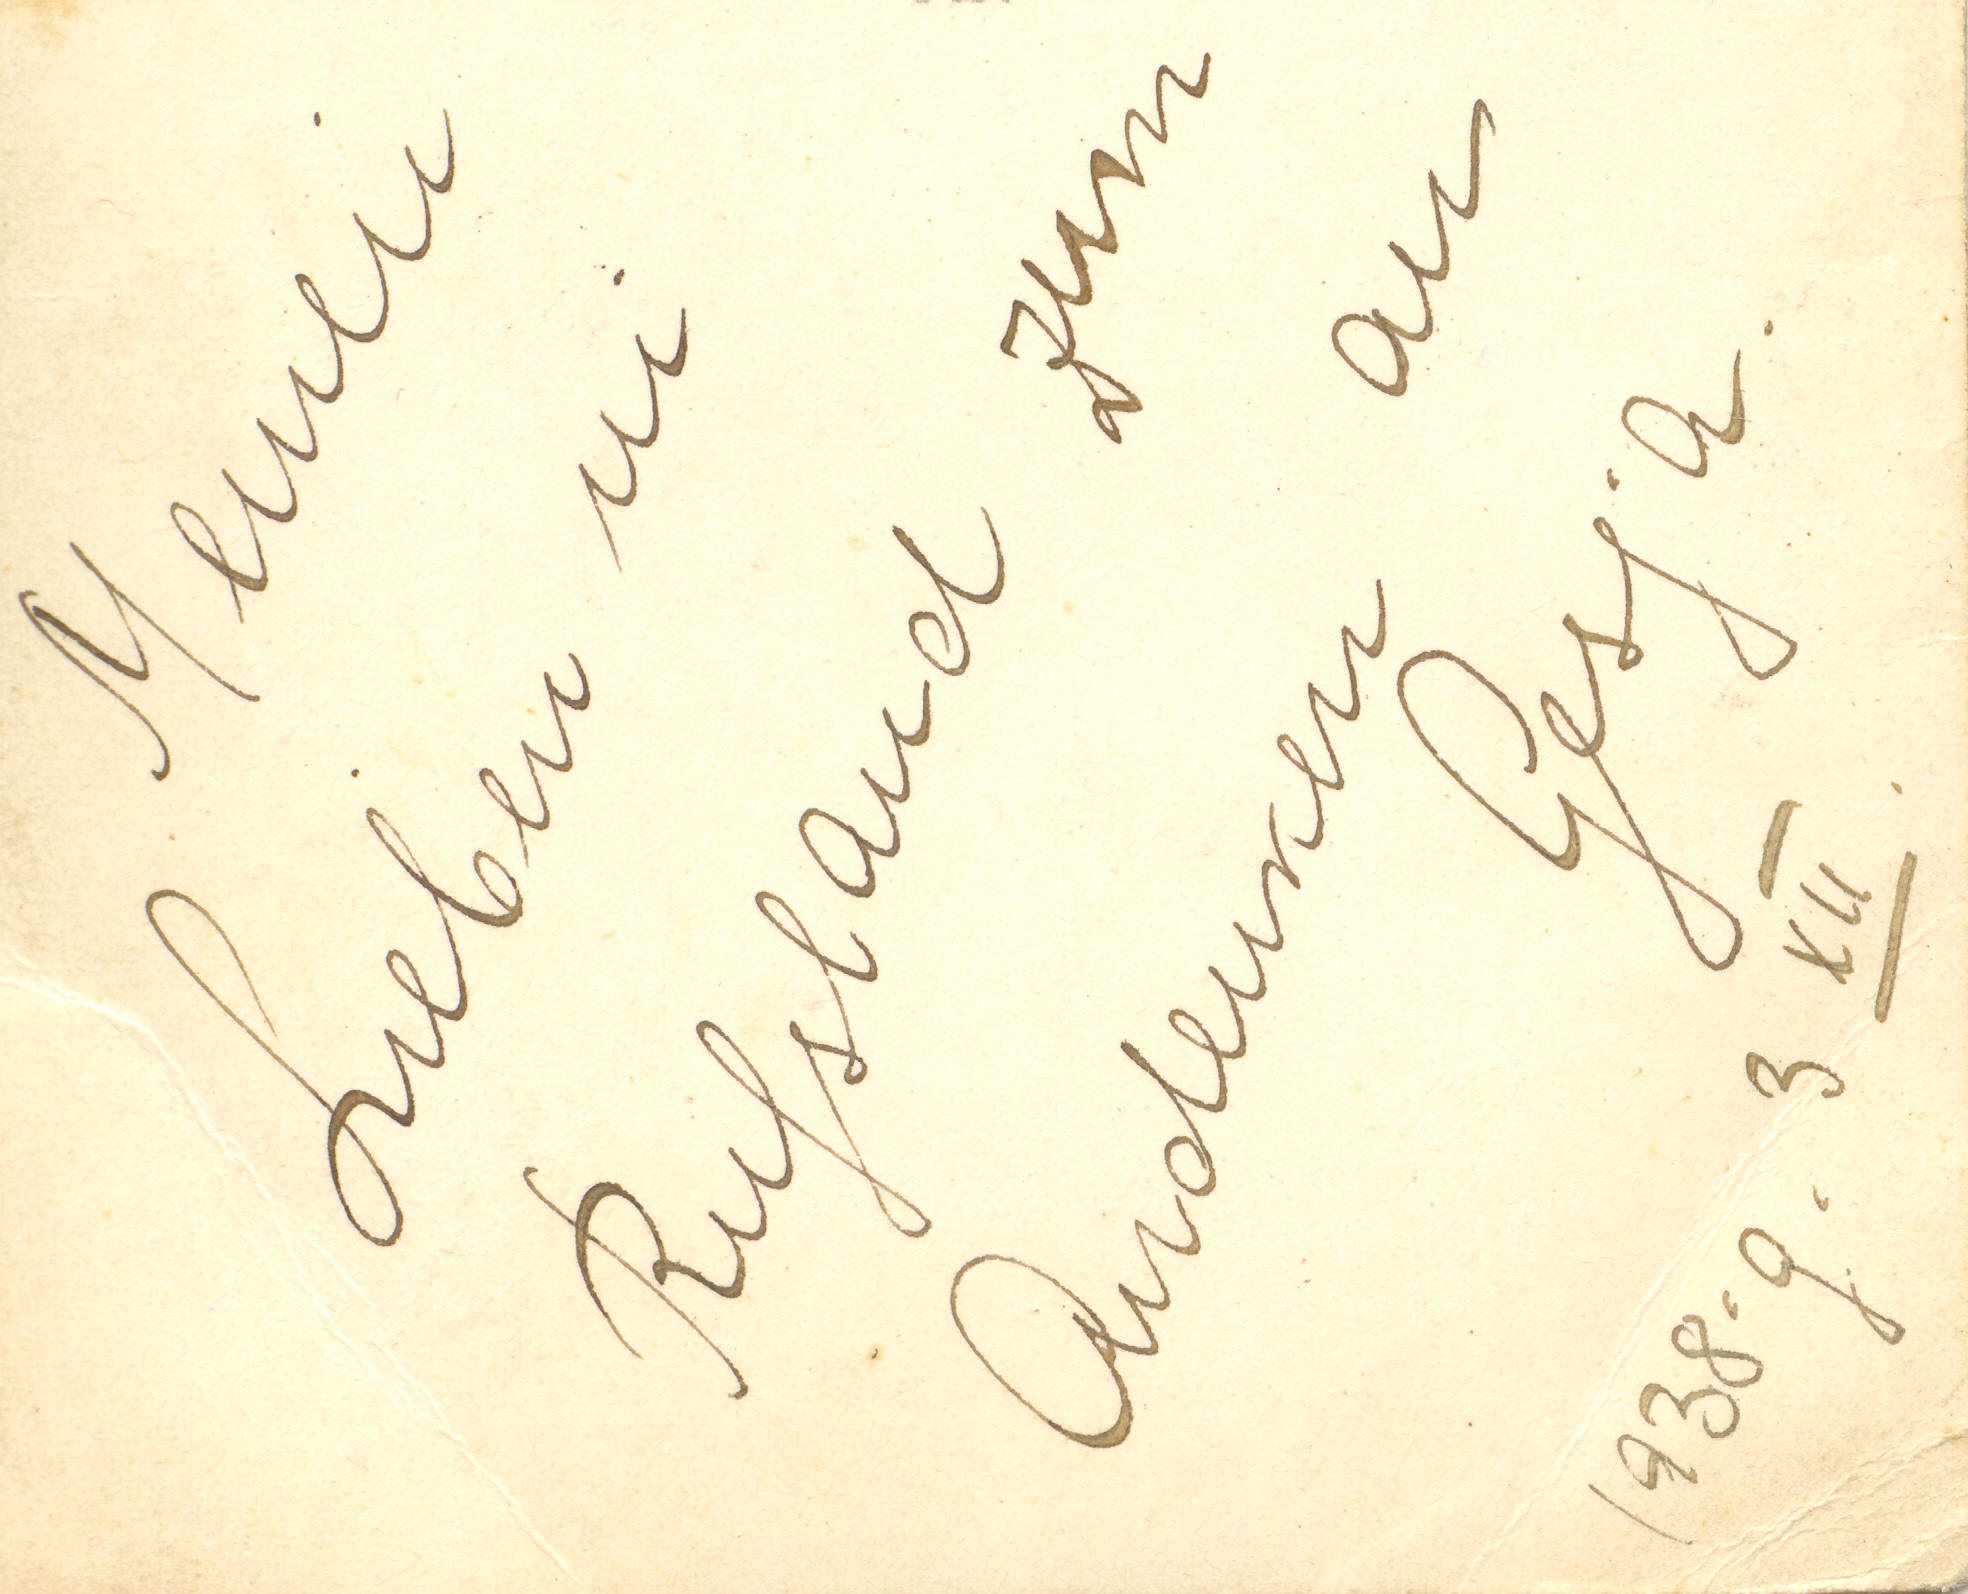 Meinen
Lieben in
Rußland zum
Andenken an
Gesj.a.
1938.g. 3 XII